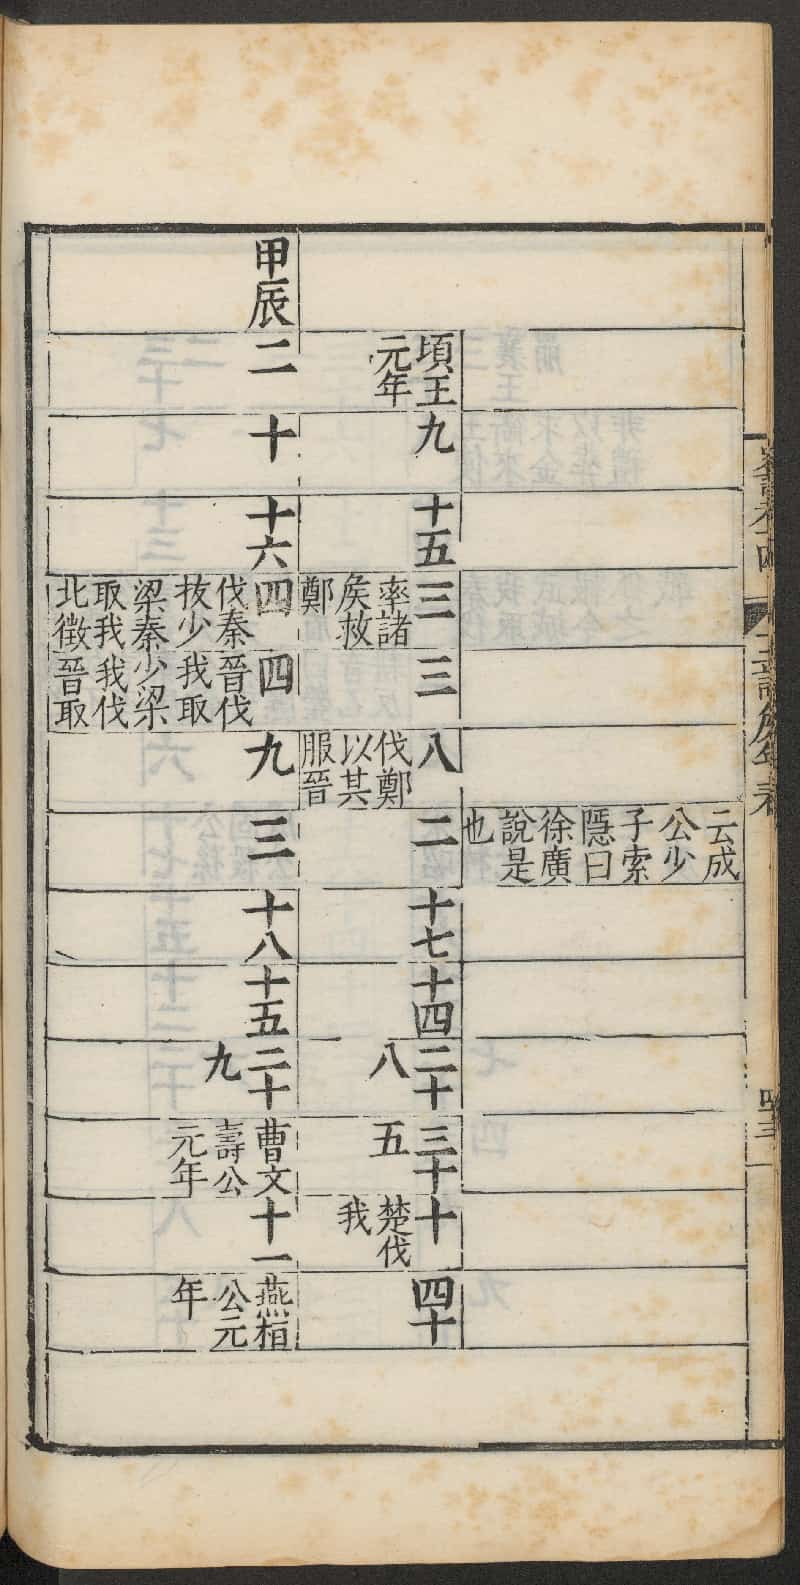 云成
公少
子索
隱曰
徐廣
說是
也
頃王
元年
九
十五
三
率諸
矦救
鄭
三
八
伐鄭
以其
服晉
二
十七
十四
二十
八
三十
五
十
楚伐
我
四十
甲辰
二
十
十六
四
伐秦
抜少
梁秦
取我
北徵
四
晉伐
我取
少梁
我伐
晉取
九
三
十八
十五
二十
九
曹文
壽公
元年
十一
燕桓
公元
年